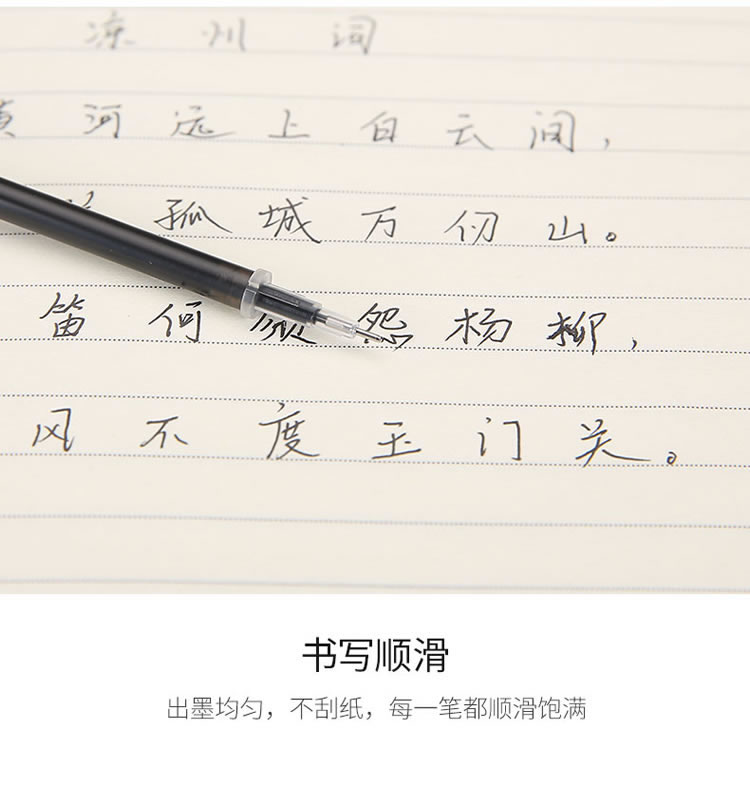 凉州词
黄河远上白云间，
孤城万仞山。
笛何须怨杨柳，
风不度玉门关。
书写顺滑
出墨均匀，不刮纸，每一笔都顺滑饱满